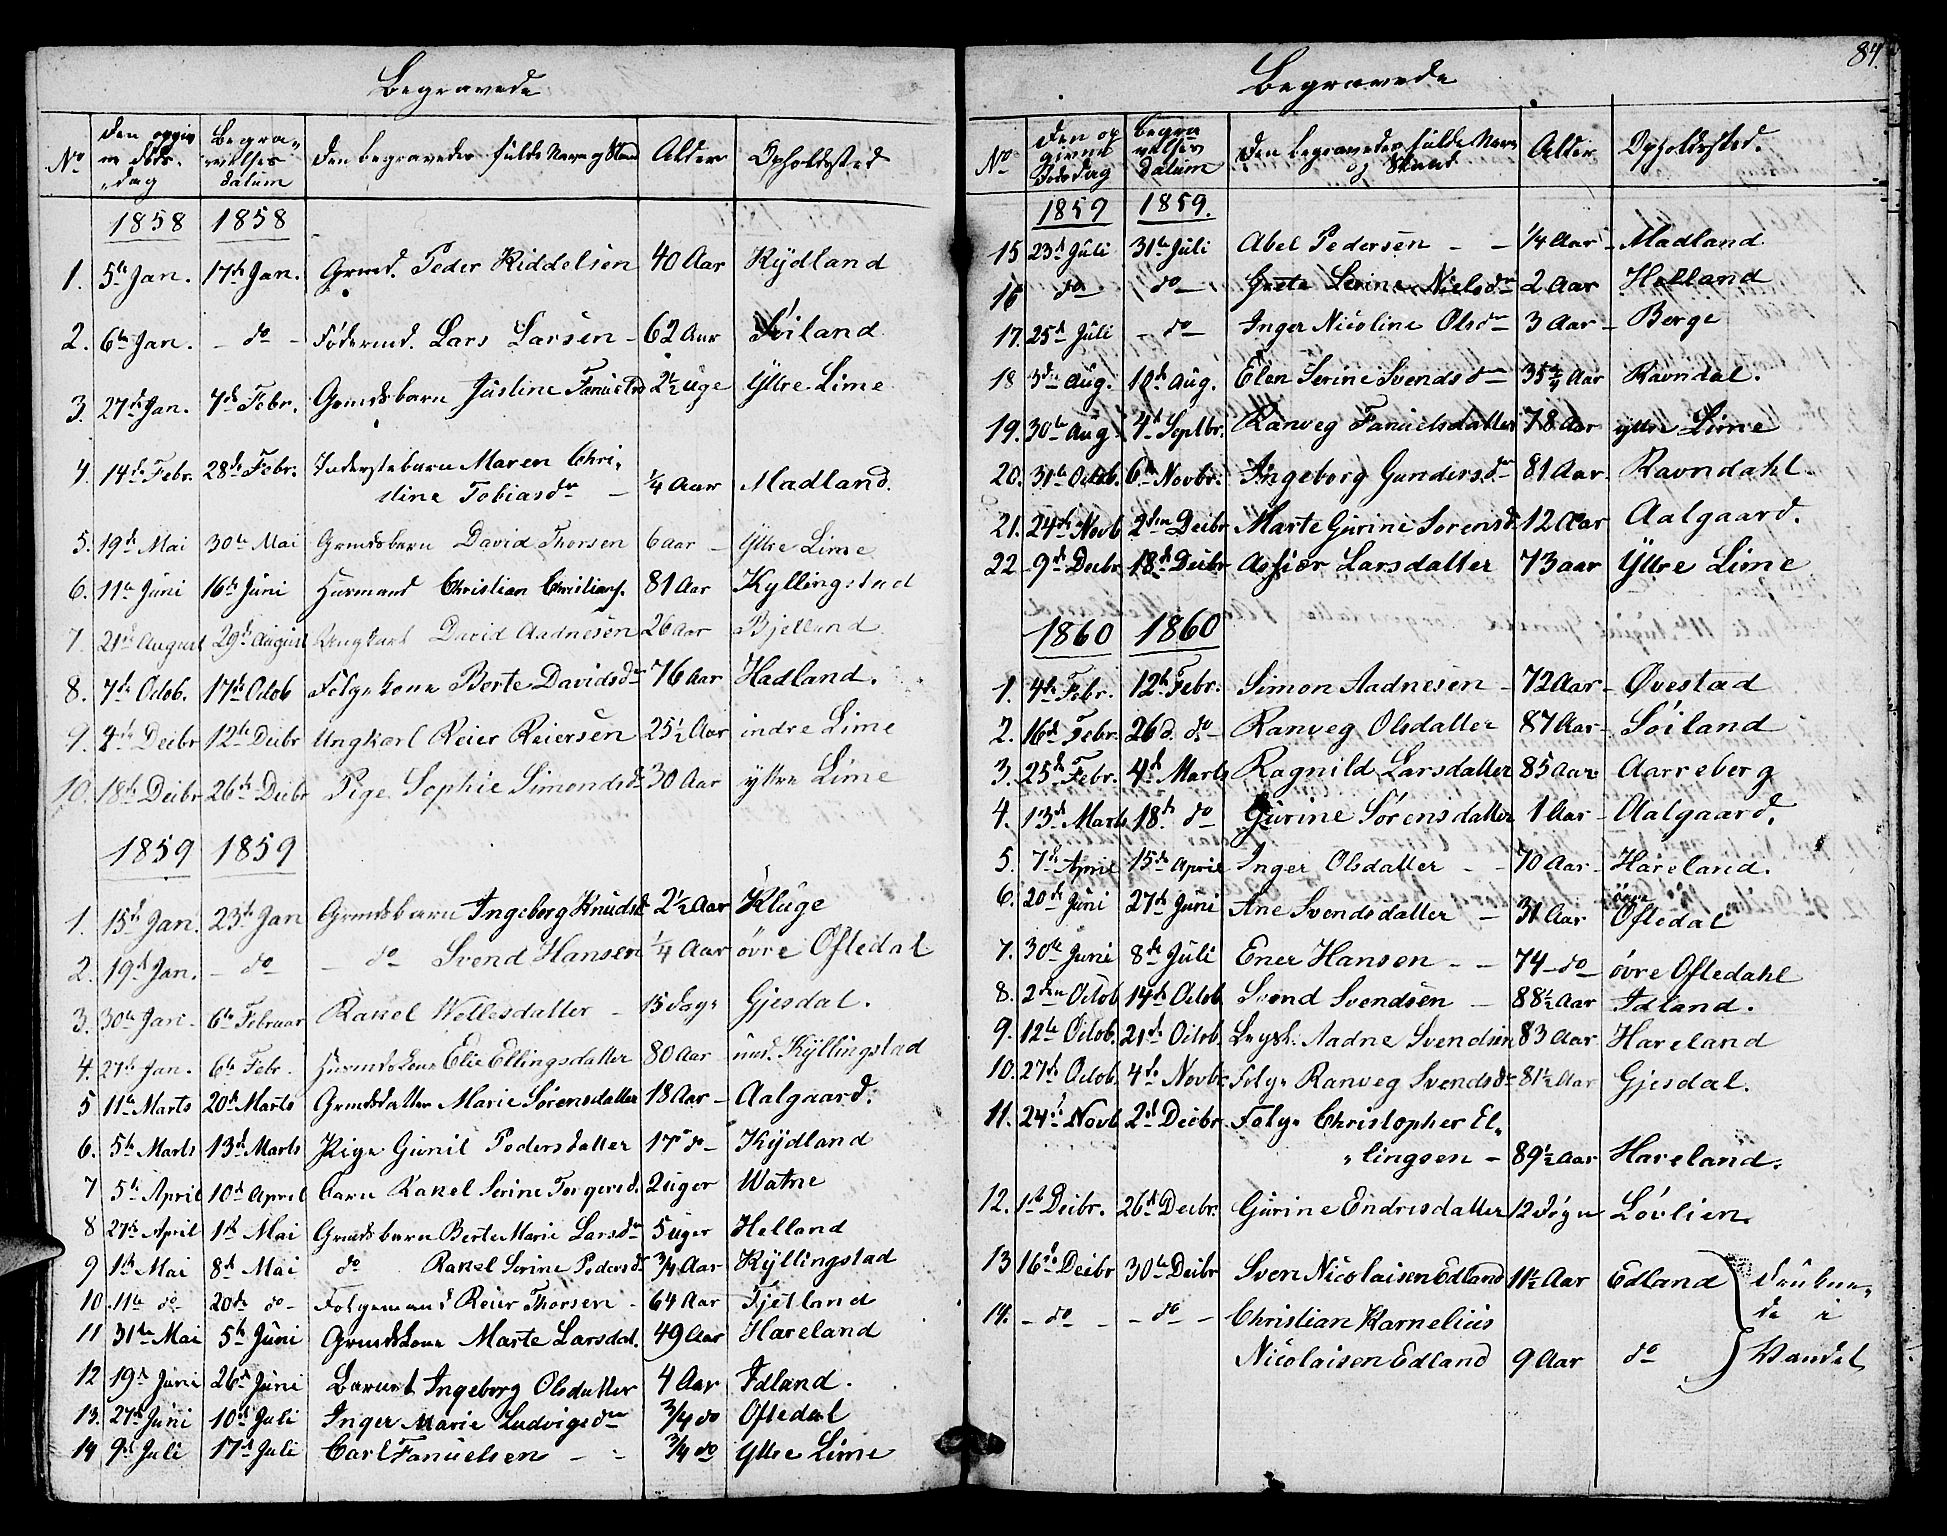 84.
Begravede
No Den opgivne Døds-dag Begravelses datum Den begravedes fulde Navn og Stand Alder Opholdssted
1858 1858
1. 5te Jan. 17de Jan. Grmd. Peder Kiddelsen 40 Aar Kydland
2. 6te Jan. - do - Fødermd. Lars Larsen - 62 Aar Søiland
3. 27de Jan. 7de Febr. Grmdsbarn Justine Fanuelsd 2½ Uge Yttre Lime
4. 14de Febr. 28de Febr. Inderstebarn Maren Chri-
stine Tobiasdr - ¼ Aar Madland.
5. 19de Mai 30te Mai Grmdsbarn David Thorsen 6 aar - Yttre Lime
6. 11te Juni 16de Juni Huusmand Christian Christians. 81 Aar Kyllingstad
7. 21de August 29de August Ungkarl David Aadnesen 26 Aar Bjelland
8. 7de Octob. 17de Octob Følgekone Berte Davidsdr 76 Aar Hadland.
9. 4de Decbr 12te Decbr Ungkarl Reier Reiersen 25½ Aar indre Lime
10. 18de Decbr 26de Decbr Pige Sophie Simonsdr 30 Aar yttre Lime
1859 1859
1. 15de Jan. 23de Jan Grmdsbarn Ingeborg Knudsd 2½ Aar Kluge
2. 19de Jan. - do - do - Svend Hansen ¼ Aar øvre Oftedal
3. 30te Jan. 6te Februar Rakel Wellesdatter - 15 Dage Gjesdal.
4. 27de Jan. 6te Febr. Huusmdskone Elie Ellingsdatter 80 Aar - Kyllingstad
5 11te Marts 20de Marts Grmdsdatter Marie Sørensdatter 18 Aar - Aalgaard.
6. 5te Marts 13de Marts Pige Gunil Pedersdatter 17 do - Kydland
7 5te April 10de April barn Rakel Serine Torgersd. 2 uger Watne
8 27de April 1ste Mai Grmdsbarn Berte Marie Larsdr 5 uger Helland
9 1ste Mai 8de Mai do Rakel Serine Pedersdr ¾ Aar Kyllingstad
10 11te do 20de do - Følgemand Reier Thorsen - 64 Aar Fjetland
11 31te Mai 5te Juni Grmdskone Marte Larsdat. 49 Aar Hareland
12 19de Juni 26de Juni Barnet Ingeborg Olsdatter 4 Aar Idland.
13. 27de Juni 10de Juli Inger Marie Ludvigsdr ¾ do Oftedal
14 9de Juli 17de Juli Carl Fanuelsen - - ¾ do Yttre Lime
Begravede
No Den opgivne Dødsdag Begravelses datum Den begravedes fulde Navn og Stand Alder Opholdssted.
1859 1859.
15 23de Juli 31te Juli Abel Pedersen - - ¼ Aar - Madland
16 do - do - Grete Serine Nielsdr 2 Aar Helland
17. 25de Juli - do - Inger Nicoline Olsdr 3 Aar - Berge
18 3die Aug. 10de Aug. Elen Serine Svendsdr 35 Aar Ravndal.
19. 30te Aug. 4de Septbr. Ranveg Fanuelsdatter 78 Aar yttre Lime
20. 31te Octob. 6te Novbr. Ingeborg Gundersdr 81 Aar. Ravndahl.
21. 24de Novb 2den Decbr Marte Gurine Sørensd. 12 Aar Aalgaard.
22 9de Decbr 18de Decbr Assier Larsdatter 73 aar Yttre Lime
1860 1860
1. 4de Febr. 12te Febr. Simon Aadnesen - 72 Aar - Øvestad
2. 16de Febr. 26d. do - Ranveg Olsdatter 87 Aar - Søiland
3. 25de Febr. 4de Marts Ragnild Larsdatter 85 Aar Aarreberg
4. 13de Marts 18de do - Gurine Sørensdatter 1 Aar - Aalgaard.
5. 7de April 15de April Inger Olsdatter - - 70 Aar - Hareland.
6. 20de Juni 27de Juni Ane Svendsdatter - 31 Aar övre Oftedal
7. 30te Juni 8de Juli Ener Hansen - - 74 - do - øvre Oftedahl
8. 2den Octob 14de Octob. Svend Svendsen - 88½ Aar Idland.
9. 12te Octob. 21de Octob. Aadne Svendsen 83 Aar Hareland
10. 27de Octob. 4de Novbr. Følge Ranveg Svendsdr 81½ Aar Gjesdal.
11. 24de Novb 2d Decbr Følge Christopher El-
lingsen - 89½ Aar Hareland.
12. 1ste Decbr. 26de Decbr. Gurine Endresdatter 12 Døgn Løvlien.
13 16de Decbr 30te Decbr Sven Nicolaisen Edland 11½ Aar Edland } Druknede i Vandet
14. - do - - do - Christian Karnelius
Nicolaisen Edland 9 Aar do